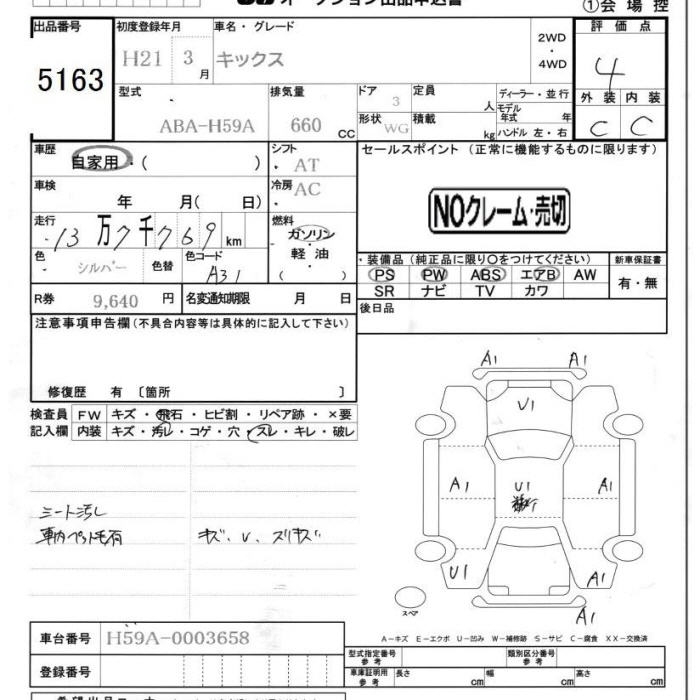 オークション出品申込書
①会場控
出品番号 5163
初度登録年月 H21 3月
車名・グレード キックス
2WD・4WD
評価点 4
外装 C 内装 C
型式 ABA-H59A
排気量 660 CC
ドア 3
形状 WG
定員 人
積載 kg
ディーラー・並行
モデル年式 年
ハンドル 左・右
車歴 自家用・( )
シフト AT
セールスポイント (正常に機能するものに限ります)
NOクレーム・売切
車検 年 月( 日)
冷房 AC
走行 13万7千769km
燃料 ガソリン 軽油 ( )
色 シルバー 色替 色コード A31
・装備品(純正品に限り○をつけてください)
新車保証書 有・無
PS PW ABS エアB AW
SR ナビ TV カワ
R券 9,640 円
名変通知期限 月 日
後日品
注意事項申告欄(不具合内容等は具体的に記入して下さい)
修復歴 有〔箇所 〕
検査員記入欄
FW キズ・飛石・ヒビ割・リペア跡・×要
内装 キズ・汚レ・コゲ・穴・スレ・キレ・破レ
シート汚し
車内ペット毛有
キズ、U、スリキズ
A1 A1
U1
A1 U1 A1
U1 A1
A1
スペア
A-キズ E-エクボ U-凹み W-補修跡 S-サビ C-腐食 XX-交換済
車台番号 H59A-0003658
登録番号
型式指定番号 参考
類別区分番号 参考
車庫証明用 参考 長さ cm 幅 cm 高さ cm